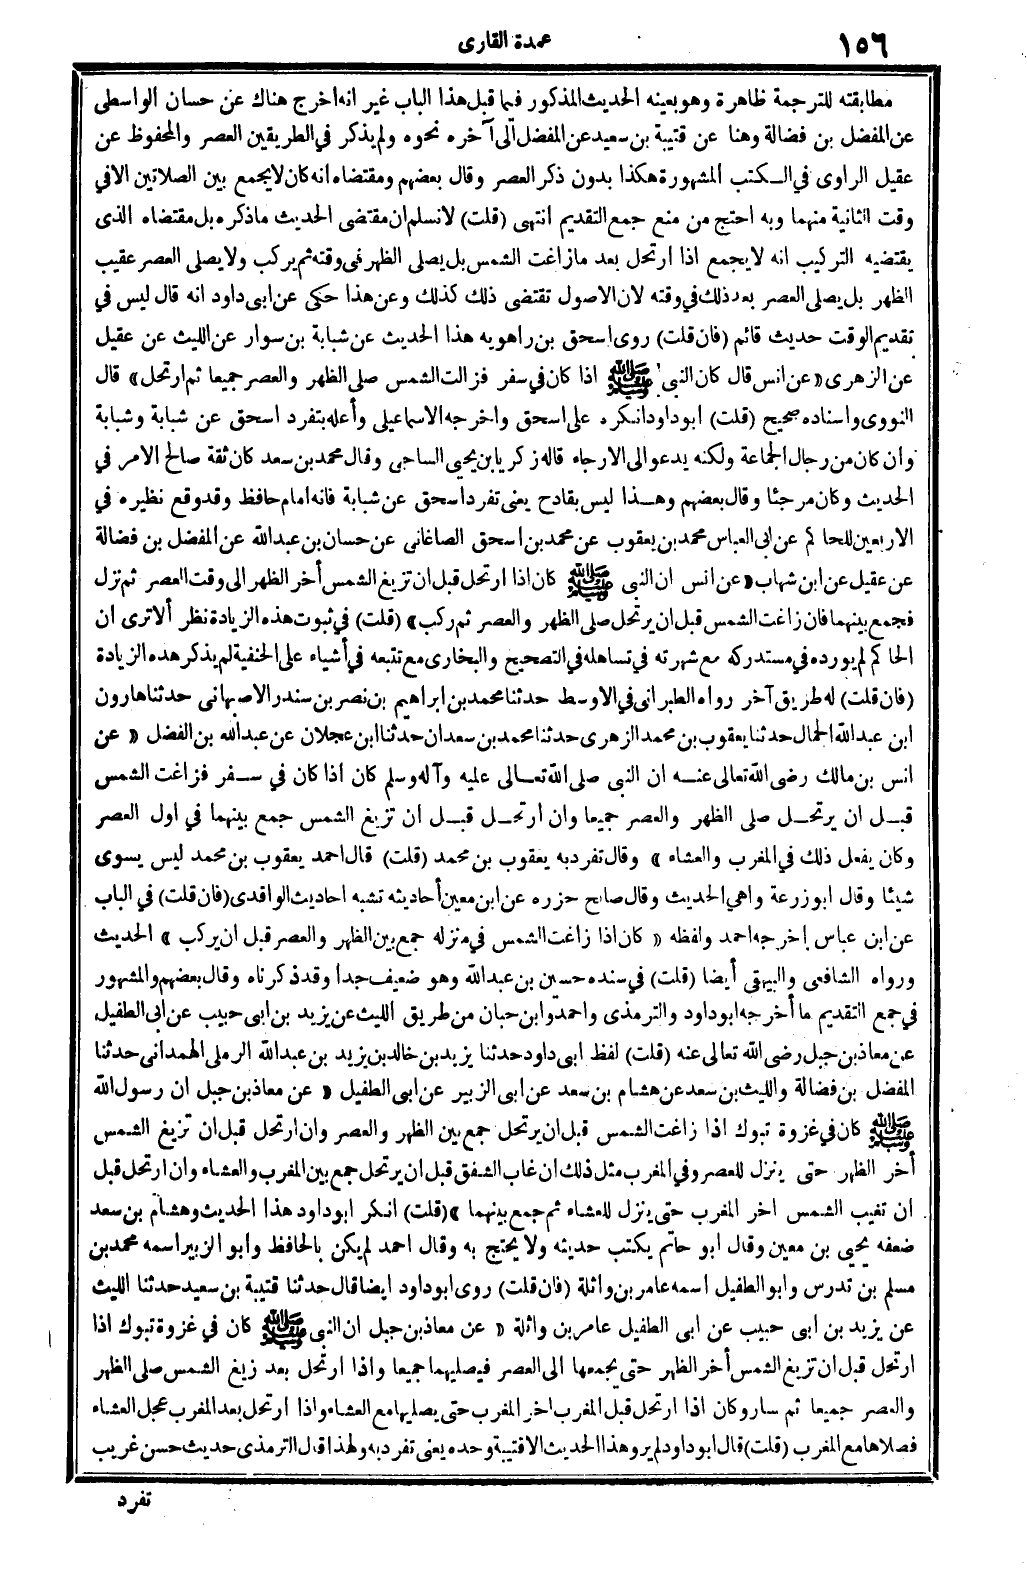 ١٥٦
عمدة القارى
مطابقته للترجمة ظاهرة وهو بعينه الحديث المذكور فيما قبل هذا الباب غير انه اخرج هناك عن حسان الواسطى
عن المفضل بن فضالة وهنا عن قتيبة بن سعيد عن المفضل الى آخره نحوه ولم يذكر في الطريقين العصر والمحفوظ عن
عقيل الراوى في الكتب المشهورة هكذا بدون ذكر العصر وقال بعضهم ومقتضاه انه كان لا يجمع بين الصلاتين الا في
وقت الثانية منهما وبه احتج من منع جمع التقديم انتهى (قلت) لا نسلم ان مقتضى الحديث ما ذكره بل مقتضاه الذى
يقتضيه التركيب انه لا يجمع اذا ارتحل بعد ما زاغت الشمس بل يصلى الظهر فى وقته ثم يركب ولا يصلى العصر عقيب
الظهر بل يصلى العصر بعد ذلك في وقته لان الاصول تقتضى ذلك كذلك وعن هذا حكى عن ابى داود انه قال ليس في
تقديم الوقت حديث قائم (فان قلت) روى اسحق بن راهويه هذا الحديث عن شبابة بن سوار عن الليث عن عقيل
عن الزهرى «عن انس قال كان النبي ﷺ اذا كان في سفر فزالت الشمس صلى الظهر والعصر جميعا ثم ارتحل» قال
النووى واسناده صحيح (قلت) ابو داود انكره على اسحق واخرجه الاسماعيلى وأعله بتفرد اسحق عن شبابة وشبابة
وان كان من رجال الجماعة ولكنه يدعو الى الارجاء قاله زكريا بن يحيى الساجى وقال محمد بن سعد كان ثقة صالح الامر في
الحديث وكان مرجئا وقال بعضهم وهذا ليس بقادح يعنى تفرد اسحق عن شبابة فانه امام حافظ وقد وقع نظيره في
الاربعين للحاكم عن ابى العباس محمد بن يعقوب عن محمد بن اسحق الصاغانى عن حسان بن عبدالله عن المفضل بن فضالة
عن عقيل عن ابن شهاب «عن انس ان النبى ﷺ كان اذا ارتحل قبل ان تزيغ الشمس أخر الظهر الى وقت العصر ثم نزل
فجمع بينهما فان زاغت الشمس قبل ان يرتحل صلى الظهر والعصر ثم ركب» (قلت) في ثبوت هذه الزيادة نظر ألا ترى ان
الحاكم لم يورده في مستدركه مع شهرته في تساهله في التصحيح والبخارى مع تتبعه في أشياء على الحنفية لم يذكر هذه الزيادة
(فان قلت) له طريق آخر رواه الطبرانى في الاوسط حدثنا محمد بن ابراهيم بن نصر بن سندر الاصبهانى حدثنا هارون
ابن عبدالله الحمال حدثنا يعقوب بن محمد الزهرى حدثنا محمد بن سعدان حدثنا ابن عجلان عن عبدالله بن الفضل «عن
انس بن مالك رضى الله تعالى عنه ان النبى صلى الله تعالى عليه وآله وسلم كان اذا كان في سفر فزاغت الشمس
قبل ان يرتحل صلى الظهر والعصر جميعا وان ارتحل قبل ان تزيغ الشمس جمع بينهما في اول العصر
وكان يفعل ذلك في المغرب والعشاء» وقال تفرد به يعقوب بن محمد (قلت) قال احمد يعقوب بن محمد ليس يسوى
شيئا وقال ابو زرعة واهي الحديث وقال صالح جزره عن ابن معين أحاديثه تشبه احاديث الواقدى (فان قلت) في الباب
عن ابن عباس اخرجه احمد ولفظه «كان اذا زاغت الشمس في منزله جمع بين الظهر والعصر قبل ان يركب» الحديث
ورواه الشافعى والبيهقى أيضا (قلت) في سنده حسين بن عبدالله وهو ضعيف جدا وقد ذكرناه وقال بعضهم والمشهور
في جمع التقديم ما أخرجه ابو داود والترمذى واحمد وابن حبان من طريق الليث عن يزيد بن ابى حبيب عن ابى الطفيل
عن معاذ بن جبل رضى الله تعالى عنه (قلت) لفظ ابى داود حدثنا يزيد بن خالد بن يزيد بن عبدالله الرملى الهمدانى حدثنا
المفضل بن فضالة والليث بن سعد عن هشام بن سعد عن ابى الزبير عن ابى الطفيل «عن معاذ بن جبل ان رسول الله
ﷺ كان في غزوة تبوك اذا زاغت الشمس قبل ان يرتحل جمع بين الظهر والعصر وان ارتحل قبل ان تزيغ الشمس
أخر الظهر حتى ينزل للعصر وفي المغرب مثل ذلك ان غاب الشفق قبل ان يرتحل جمع بين المغرب والعشاء وان ارتحل قبل
ان تغيب الشمس اخر المغرب حتى ينزل للعشاء ثم جمع بينهما» (قلت) انكر ابو داود هذا الحديث وهشام بن سعد
ضعفه يحيى بن معين وقال ابو حاتم يكتب حديثه ولا يحتج به وقال احمد لم يكن بالحافظ وابو الزبير اسمه محمد بن
مسلم بن تدرس وابو الطفيل اسمه عامر بن واثلة (فان قلت) روى ابو داود ايضا قال حدثنا قتيبة بن سعيد حدثنا الليث
عن يزيد بن ابى حبيب عن ابى الطفيل عامر بن واثلة «عن معاذ بن جبل ان النبى ﷺ كان في غزوة تبوك اذا
ارتحل قبل ان تزيغ الشمس أخر الظهر حتى يجمعها الى العصر فيصليهما جميعا واذا ارتحل بعد زيغ الشمس صلى الظهر
والعصر جميعا ثم سار وكان اذا ارتحل قبل المغرب اخر المغرب حتى يصليها مع العشاء واذا ارتحل بعد المغرب عجل العشاء
فصلاها مع المغرب (قلت) قال ابو داود لم يرو هذا الحديث الا قتيبة وحده يعنى تفرد به ولهذا قال الترمذى حديث حسن غريب
تفرد